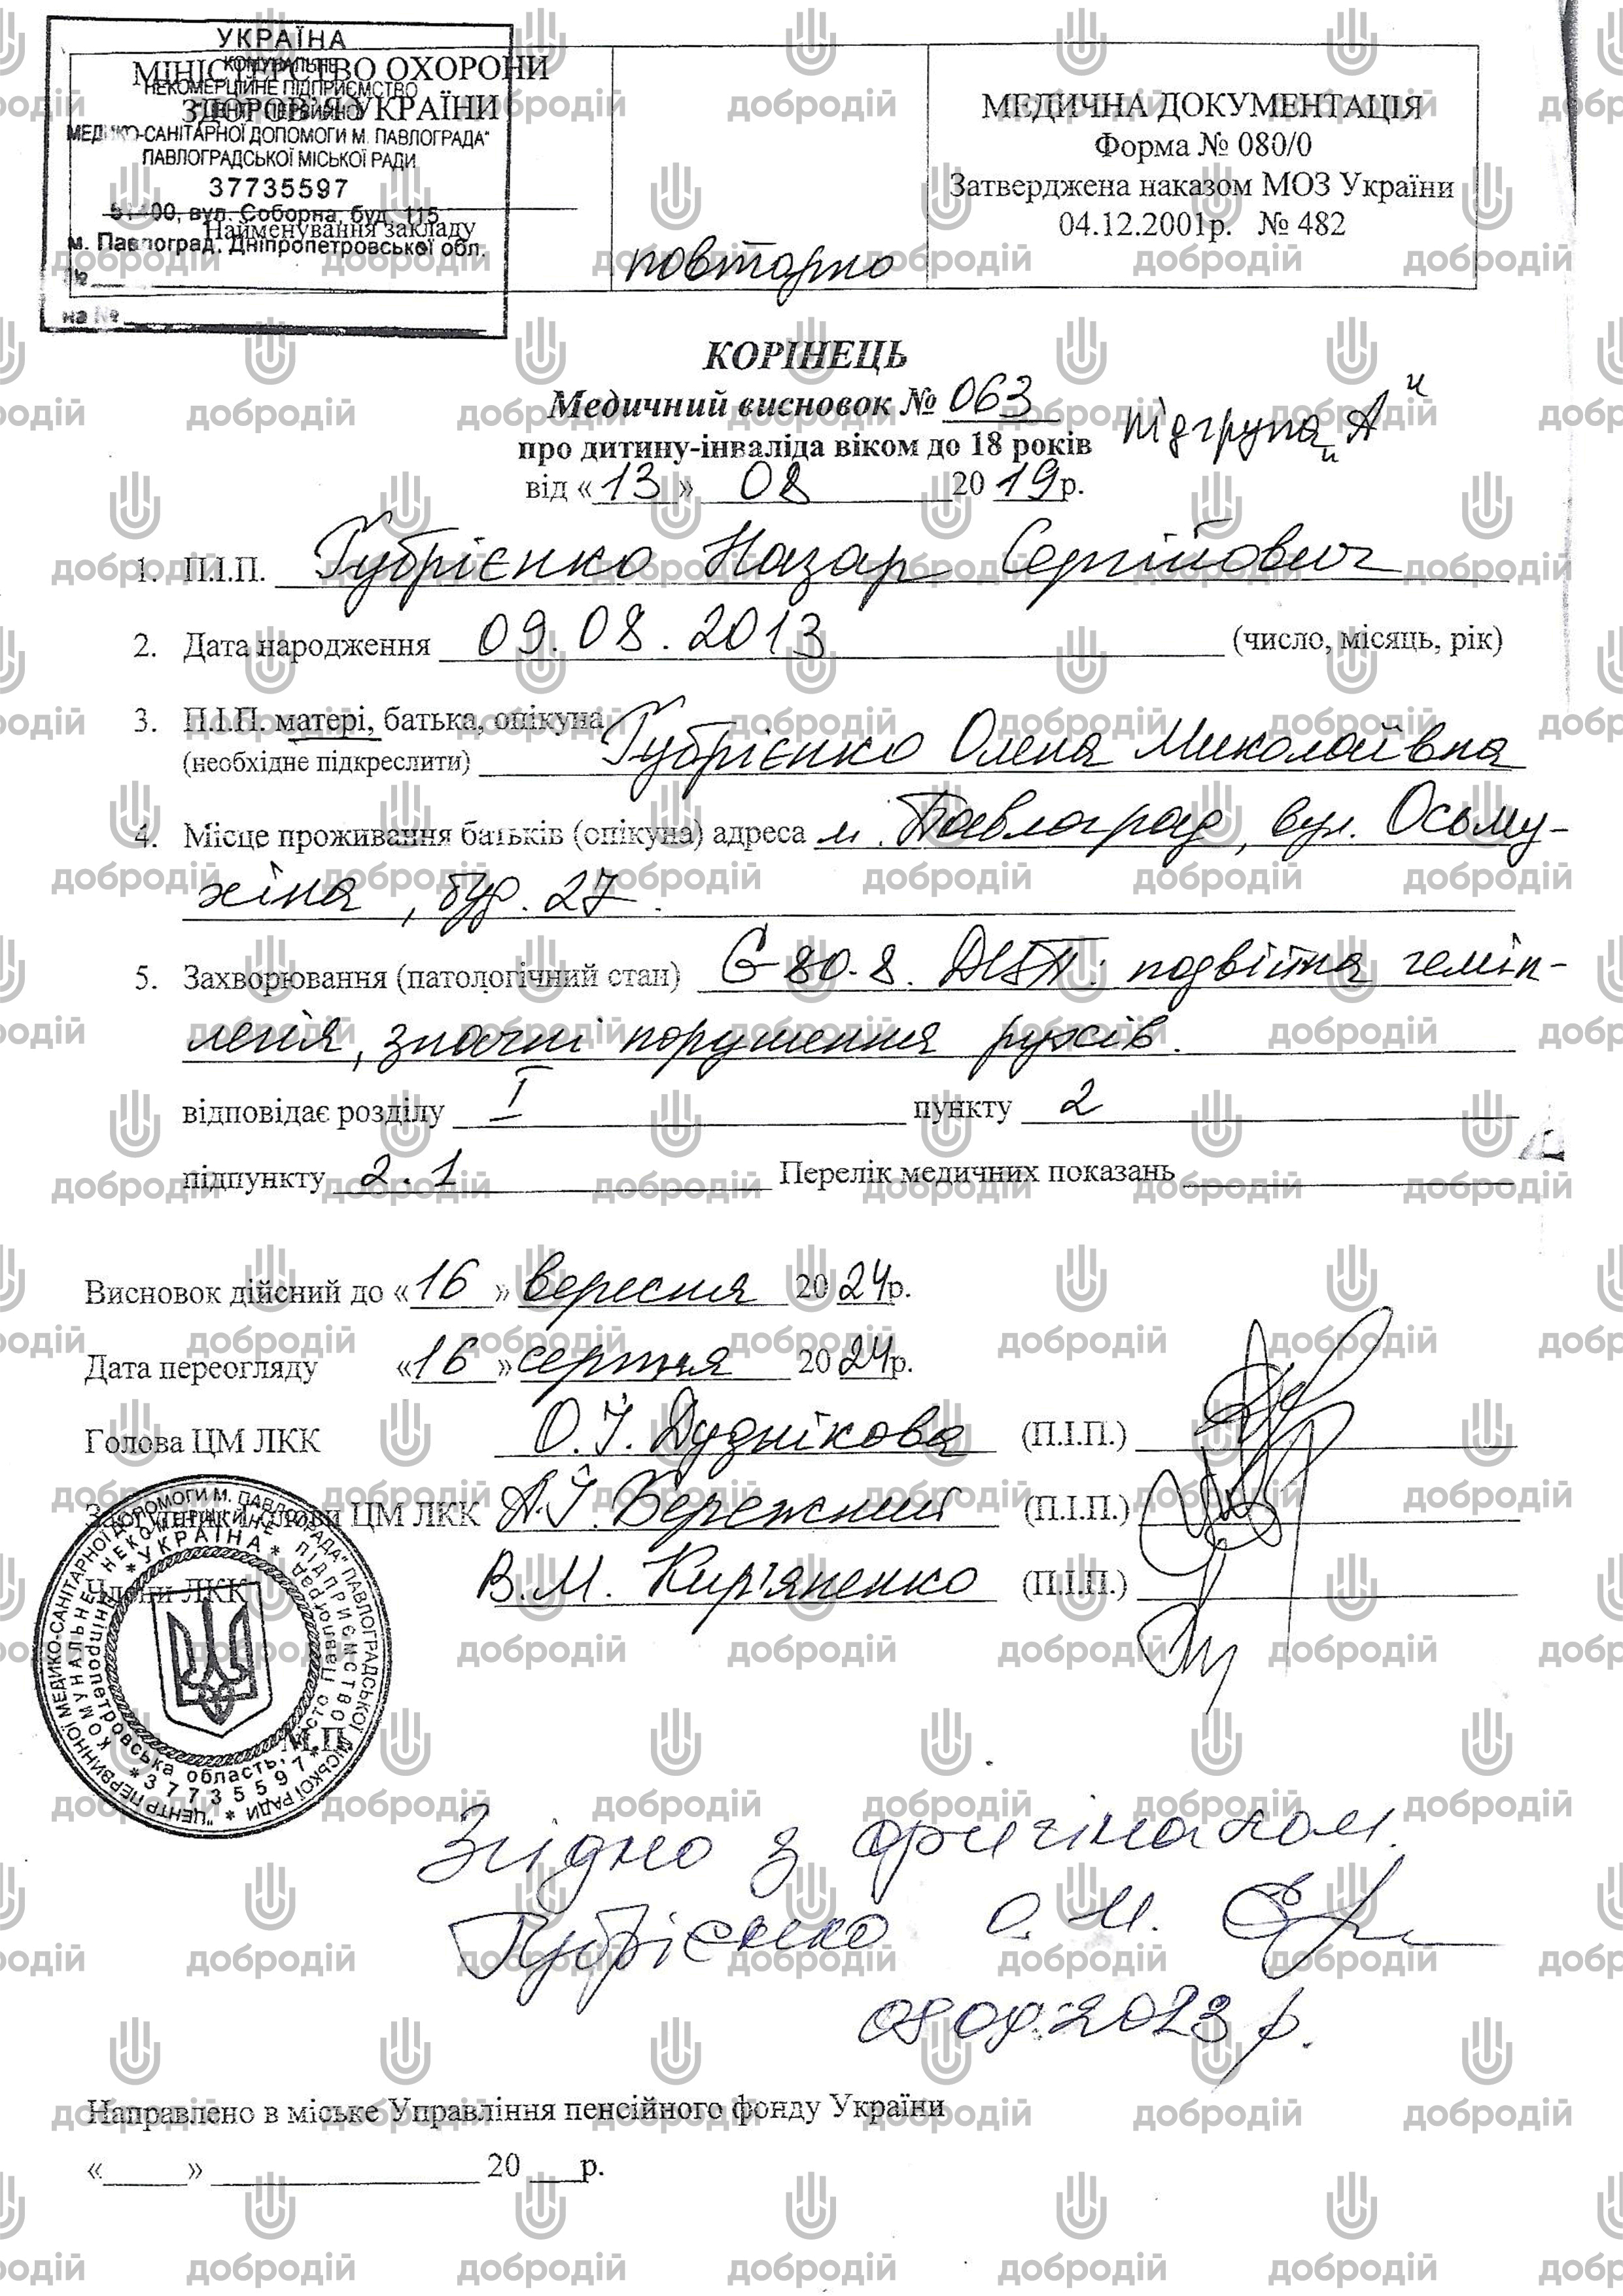 УКРАЇНА
КОМУНАЛЬНЕ
МІНІСТЕРСТВО ОХОРОНИ
НЕКОМЕРЦІЙНЕ ПІДПРИЄМСТВО
ЗДОРОВ'Я УКРАЇНИ
МЕДИКО-САНІТАРНОЇ ДОПОМОГИ М. ПАВЛОГРАДА"
ПАВЛОГРАДСЬКОЇ МІСЬКОЇ РАДИ
37735597
51400, вул. Соборна, буд. 115
Найменування закладу
м. Павлоград, Дніпропетровської обл.
№
на №
повторно
МЕДИЧНА ДОКУМЕНТАЦІЯ
Форма № 080/0
Затверджена наказом МОЗ України
04.12.2001р. № 482
КОРІНЕЦЬ
Медичний висновок № 063
про дитину-інваліда віком до 18 років підгрупа „А"
від «13» 08 2019р.
1. П.І.П. Губрієнко Назар Сергійович
2. Дата народження 09.08.2013 (число, місяць, рік)
3. П.І.П. матері, батька, опікуна
(необхідне підкреслити) Губрієнко Олена Миколаївна
4. Місце проживання батьків (опікуна) адреса м. Павлоград, вул. Осьму-
хіна, буд. 27.
5. Захворювання (патологічний стан) G 80.8. ДЦП: подвійна геміп-
легія, значні порушення рухів.
відповідає розділу I пункту 2
підпункту 2.1 Перелік медичних показань
Висновок дійсний до «16» вересня 2024р.
Дата переогляду «16» серпня 2024р.
Голова ЦМ ЛКК О.І. Дуднікова (П.І.П.)
Заступник голови ЦМ ЛКК А.І. Бережний (П.І.П.)
Члени ЛКК В.М. Кир'яненко (П.І.П.)
М.П.
"ЦЕНТР ПЕРВИННОЇ МЕДИКО-САНІТАРНОЇ ДОПОМОГИ М. ПАВЛОГРАДА" ПАВЛОГРАДСЬКОЇ МІСЬКОЇ РАДИ *
КОМУНАЛЬНЕ НЕКОМЕРЦІЙНЕ ПІДПРИЄМСТВО
* УКРАЇНА *
Дніпропетровська область, місто Павлоград
* 37735597 *
Згідно з оригіналом.
Губрієнко О. М.
08.09.2023 р.
Направлено в міське Управління пенсійного фонду України
«_____» ________________ 20 ___р.
добродій